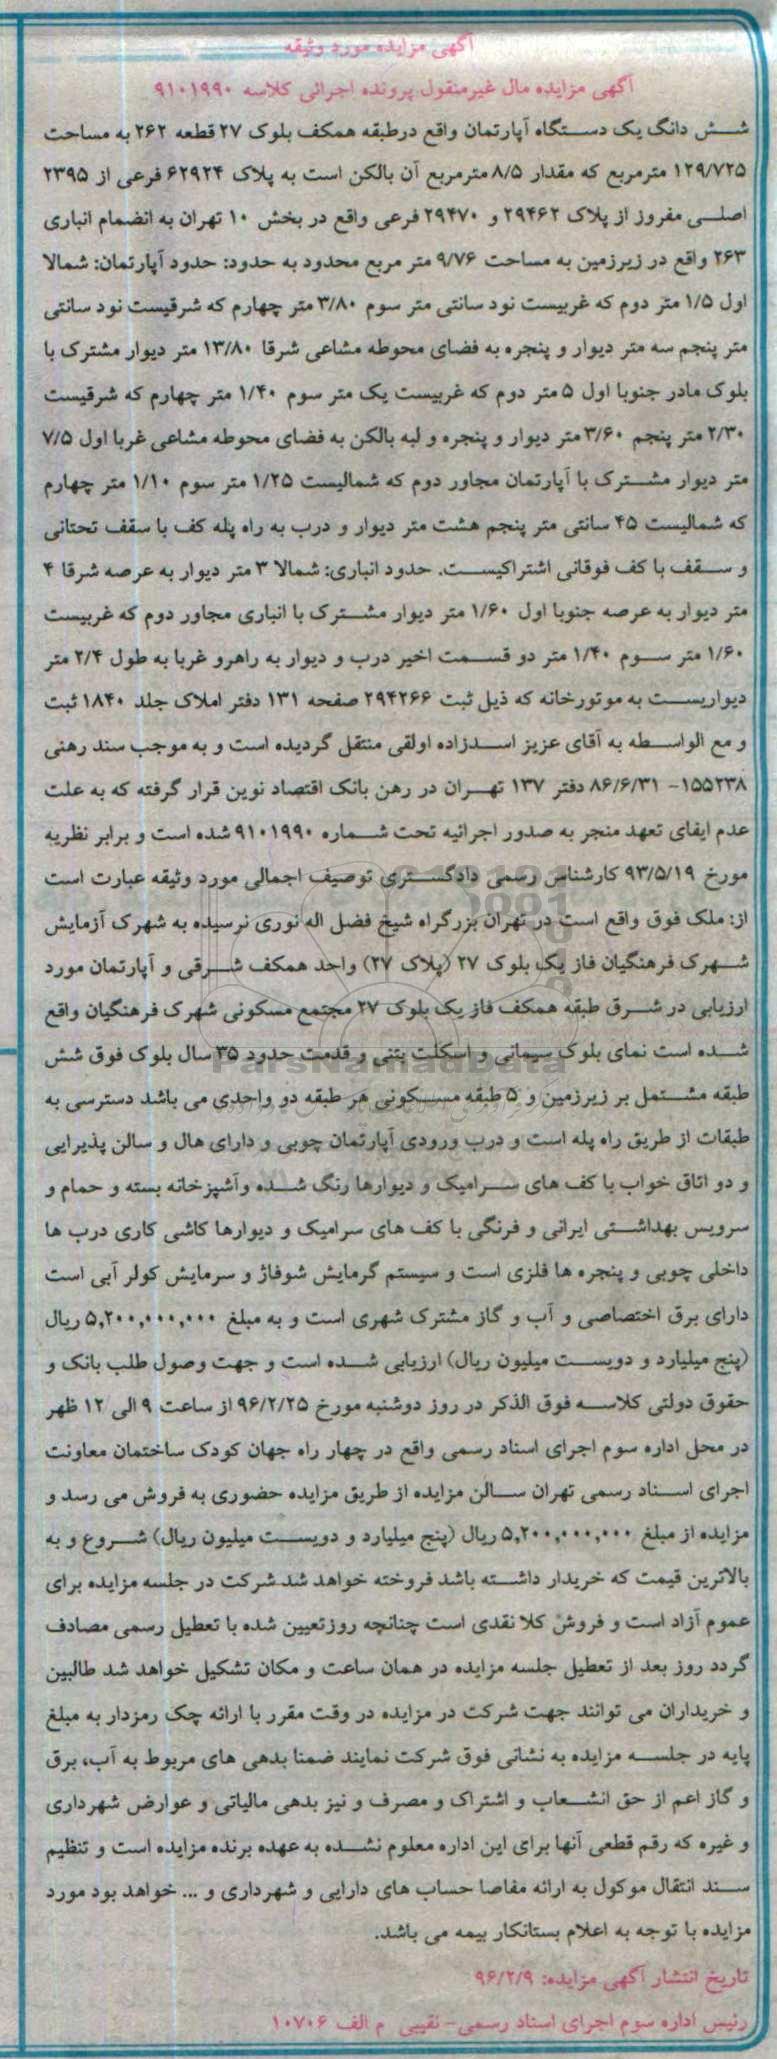 آگهی مزایده مورد وثیقه
آگهی مزایده مال غیرمنقول پرونده اجرائی کلاسه ۹۱۰۱۹۹۰
شش دانگ یک دستگاه آپارتمان واقع درطبقه همکف بلوک ۲۷ قطعه ۲۶۲ به مساحت
۱۲۹/۷۲۵ مترمربع که مقدار ۸/۵ مترمربع آن بالکن است به پلاک ۶۲۹۲۴ فرعی از ۲۳۹۵
اصلی مفروز از پلاک ۲۹۴۶۲ و ۲۹۴۷۰ فرعی واقع در بخش ۱۰ تهران به انضمام انباری
۲۶۳ واقع در زیرزمین به مساحت ۹/۷۶ متر مربع محدود به حدود: حدود آپارتمان: شمالا
اول ۱/۵ متر دوم که غربیست نود سانتی متر سوم ۳/۸۰ متر چهارم که شرقیست نود سانتی
متر پنجم سه متر دیوار و پنجره به فضای محوطه مشاعی شرقا ۱۳/۸۰ متر دیوار مشترک با
بلوک مادر جنوبا اول ۵ متر دوم که غربیست یک متر سوم ۱/۴۰ متر چهارم که شرقیست
۲/۳۰ متر پنجم ۳/۶۰ متر دیوار و پنجره و لبه بالکن به فضای محوطه مشاعی غربا اول ۷/۵
متر دیوار مشترک با آپارتمان مجاور دوم که شمالیست ۱/۲۵ متر سوم ۱/۱۰ متر چهارم
که شمالیست ۴۵ سانتی متر پنجم هشت متر دیوار و درب به راه پله کف با سقف تحتانی
و سقف با کف فوقانی اشتراکیست. حدود انباری: شمالا ۳ متر دیوار به عرصه شرقا ۴
متر دیوار به عرصه جنوبا اول ۱/۶۰ متر دیوار مشترک با انباری مجاور دوم که غربیست
۱/۶۰ متر سوم ۱/۴۰ متر دو قسمت اخیر درب و دیوار به راهرو غربا به طول ۲/۴ متر
دیواریست به موتورخانه که ذیل ثبت ۲۹۴۲۶۶ صفحه ۱۳۱ دفتر املاک جلد ۱۸۴۰ ثبت
و مع الواسطه به آقای عزیز اسدزاده اولقی منتقل گردیده است و به موجب سند رهنی
۱۵۵۲۳۸- ۸۶/۶/۳۱ دفتر ۱۳۷ تهران در رهن بانک اقتصاد نوین قرار گرفته که به علت
عدم ایفای تعهد منجر به صدور اجرائیه تحت شماره ۹۱۰۱۹۹۰ شده است و برابر نظریه
مورخ ۹۳/۵/۱۹ کارشناس رسمی دادگستری توصیف اجمالی مورد وثیقه عبارت است
از: ملک فوق واقع است در تهران بزرگراه شیخ فضل اله نوری نرسیده به شهرک آزمایش
شهرک فرهنگیان فاز یک بلوک ۲۷ (پلاک ۲۷) واحد همکف شرقی و آپارتمان مورد
ارزیابی در شرق طبقه همکف فاز یک بلوک ۲۷ مجتمع مسکونی شهرک فرهنگیان واقع
شده است نمای بلوک سیمانی و اسکلت بتنی و قدمت حدود ۳۵ سال بلوک فوق شش
ParsNamadData
طبقه مشتمل بر زیرزمین و ۵ طبقه مسکونی هر طبقه دو واحدی می باشد دسترسی به
طبقات از طریق راه پله است و درب ورودی آپارتمان چوبی و دارای هال و سالن پذیرایی
و دو اتاق خواب با کف های سرامیک و دیوارها رنگ شده وآشپزخانه بسته و حمام و
سرویس بهداشتی ایرانی و فرنگی با کف های سرامیک و دیوارها کاشی کاری درب ها
داخلی چوبی و پنجره ها فلزی است و سیستم گرمایش شوفاژ و سرمایش کولر آبی است
دارای برق اختصاصی و آب و گاز مشترک شهری است و به مبلغ ۵,۲۰۰,۰۰۰,۰۰۰ ریال
(پنج میلیارد و دویست میلیون ریال) ارزیابی شده است و جهت وصول طلب بانک و
حقوق دولتی کلاسه فوق الذکر در روز دوشنبه مورخ ۹۶/۲/۲۵ از ساعت ۹ الی ۱۲ ظهر
در محل اداره سوم اجرای اسناد رسمی واقع در چهار راه جهان کودک ساختمان معاونت
اجرای اسناد رسمی تهران سالن مزایده از طریق مزایده حضوری به فروش می رسد و
مزایده از مبلغ ۵,۲۰۰,۰۰۰,۰۰۰ ریال (پنج میلیارد و دویست میلیون ریال) شروع و به
بالاترین قیمت که خریدار داشته باشد فروخته خواهد شد شرکت در جلسه مزایده برای
عموم آزاد است و فروش کلا نقدی است چنانچه روزتعیین شده با تعطیل رسمی مصادف
گردد روز بعد از تعطیل جلسه مزایده در همان ساعت و مکان تشکیل خواهد شد طالبین
و خریداران می توانند جهت شرکت در مزایده در وقت مقرر با ارائه چک رمزدار به مبلغ
پایه در جلسه مزایده به نشانی فوق شرکت نمایند ضمنا بدهی های مربوط به آب، برق
و گاز اعم از حق انشعاب و اشتراک و مصرف و نیز بدهی مالیاتی و عوارض شهرداری
و غیره که رقم قطعی آنها برای این اداره معلوم نشده به عهده برنده مزایده است و تنظیم
سند انتقال موکول به ارائه مفاصا حساب های دارایی و شهرداری و ... خواهد بود مورد
مزایده با توجه به اعلام بستانکار بیمه می باشد.
تاریخ انتشار آگهی مزایده: ۹۶/۲/۹
رئیس اداره سوم اجرای اسناد رسمی- نقیبی م الف ۱۰۷۰۶